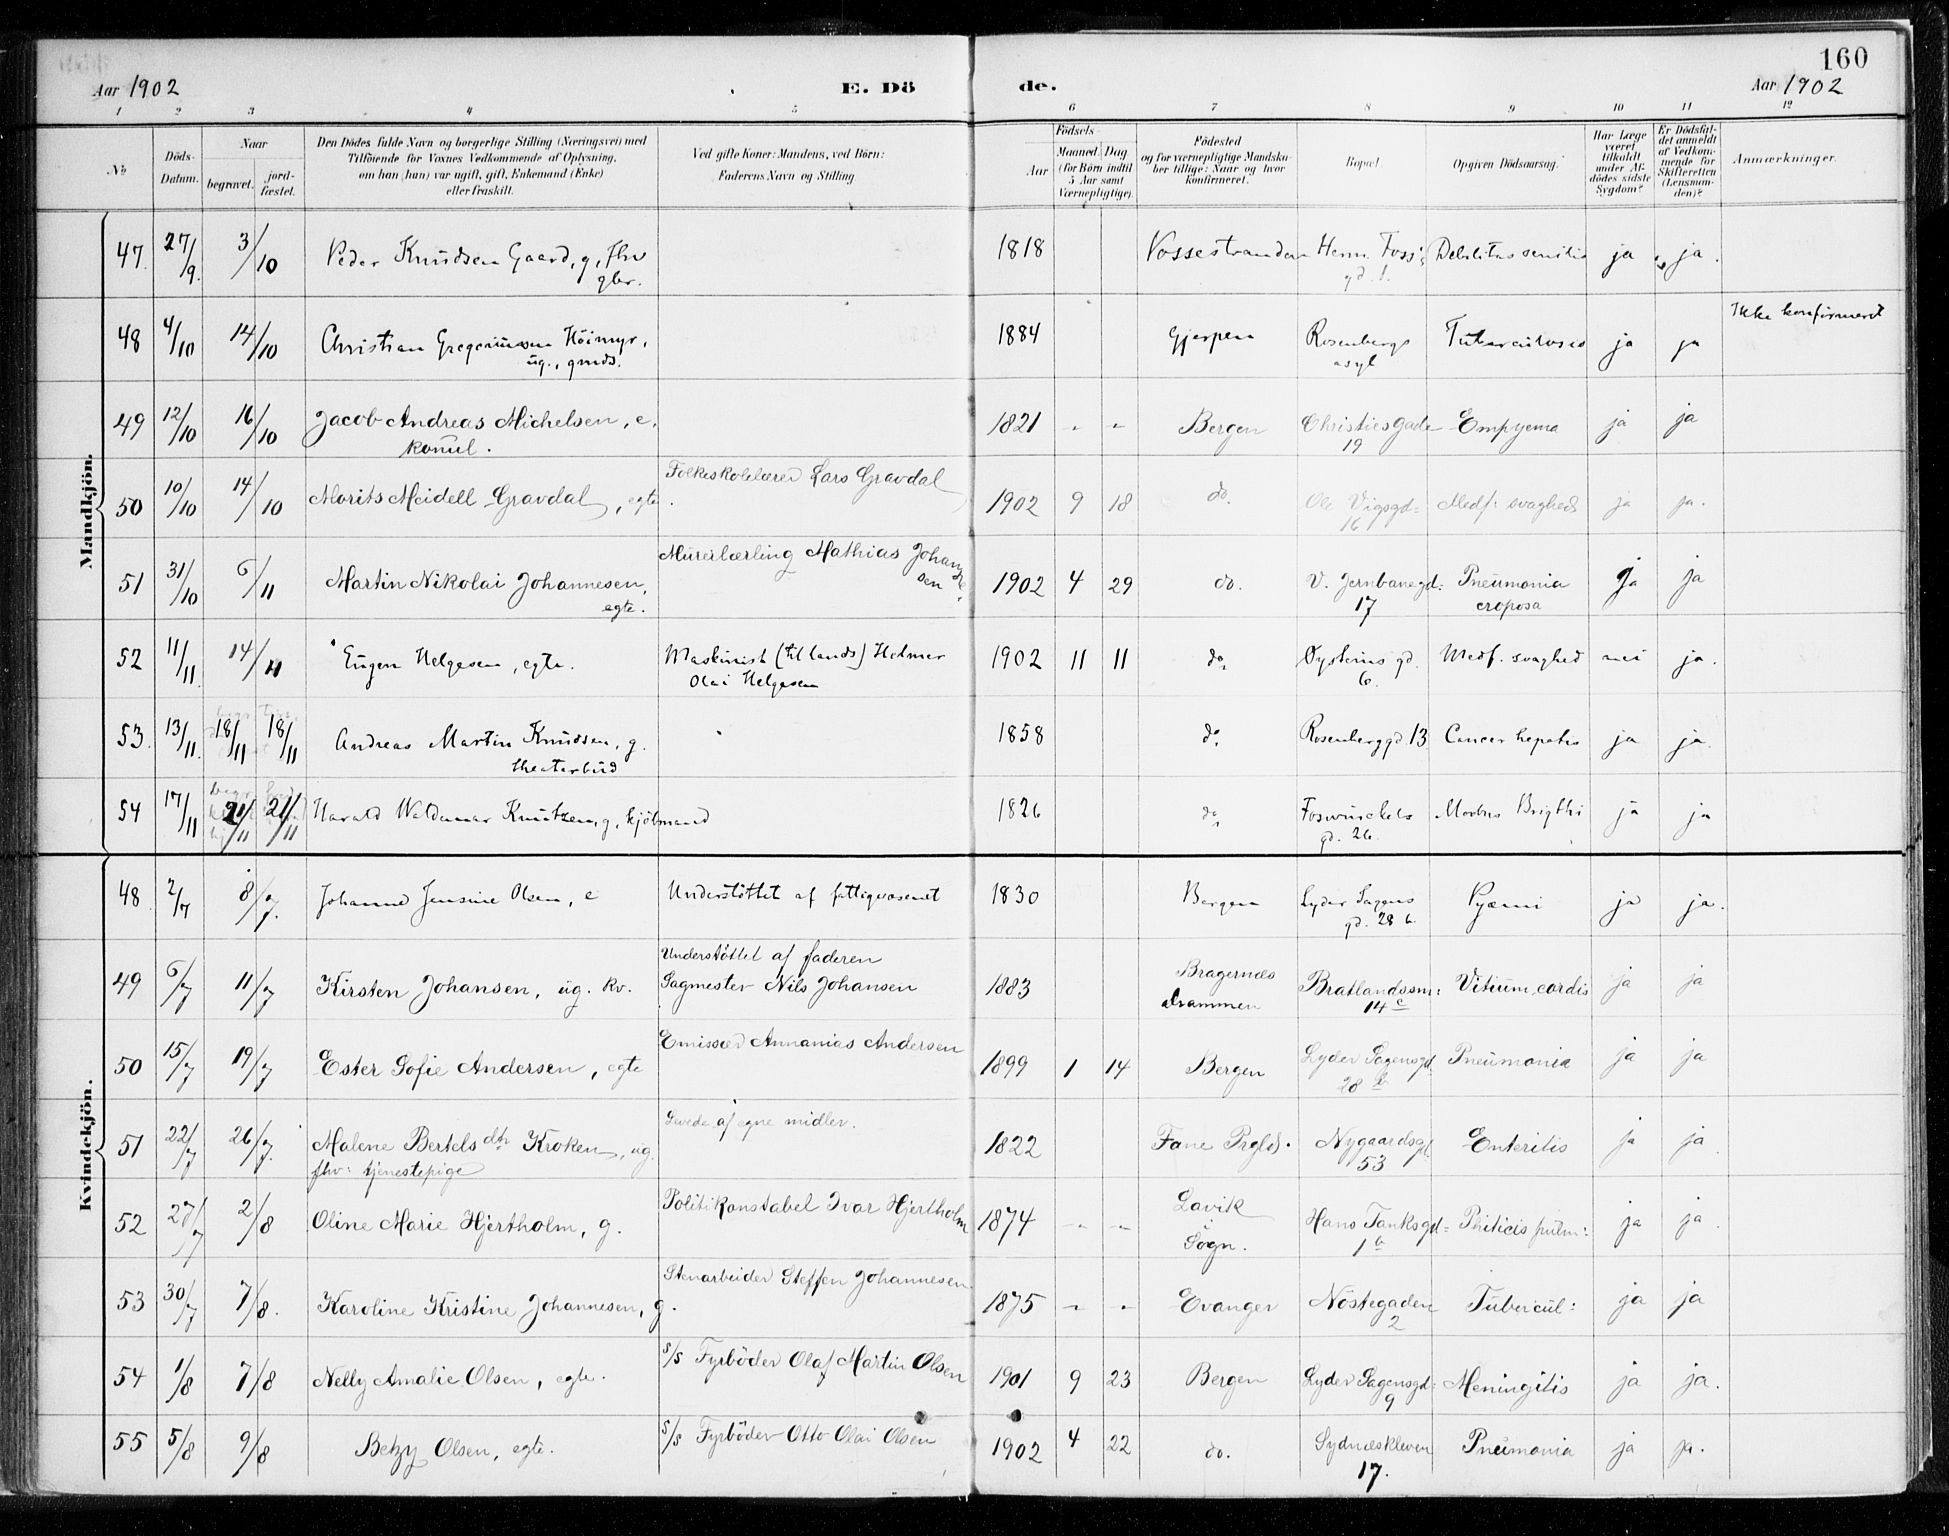 160
Aar 1902
E. Dö
de.
Aar 1902
1 2 3 4 5 6 7 8 9 10 11 12
No
Döds-Datum.
Naar
begravet.
jord-fæstet.
Den Dödes fulde Navn og borgerlige Stilling (Næringsvei) med
Tilföiende for Voxnes Vedkommende af Oplysning,
om han (hun) var ugift, gift, Enkemand (Enke)
eller fraskilt.
Ved gifte Koner: Mandens, ved Börn:
Faderens Navn og Stilling
Födsels-
Aar
Maaned. Dag
(for Börn indtil
5 Aar samt
Værnepligtige).
Födested
og for værnepligtige Mandska-
ber tillige: Naar og hvor
konfirmeret.
Bopæl.
Opgiven Dödsaarsag.
Har Læge
været
tilkaldt
under Af-
dödes sidste
Sygdom?
Er Dödsfal-
det anmeldt
af Vedkom-
mende for
Skifteretten
(Lensman-
den)?
Anmærkninger.
Mandkjön.
47. 27/9. 3/10 Peder Knudsen Gaard, g, fhv 1818 Vossestranden Henr. Foss' Debilitas senilis ja ja.
gbr. gd.
48 4/10 14/10 Christian Gregoriussen Höimyr, 1884 Gjerpen Rosenbergs Tuberculosis ja ja Ikke konfirmeret
ug., gmds. asyl
49 12/10 16/10 Jacob Andreas Michelsen, e. 1821 - - Bergen Christiesgade Empyema ja ja
konsul. 19
50 10/10 14/10 Morits Meidell Gravdal, egte Folkeskolelærer Lars Gravdal 1902 9 18 do. Ole Vigsgd: Medf: svaghed ja ja.
16
51 31/10 6/11 Martin Nikolai Johannesen, Murerlærling Mathias Johannesen 1902 4 29 do. V. Jernbanegd: Pneumonia ja ja
egte. 17 croposa
52 11/11. 14/11 Eugen Helgesen, egte. Maskinist (til lands) Helmer 1902 11 11 do, Øysteins gd. Medf. svaghed nei ja.
Olai Helgesen 6.
53. 13/11. 18/11 18/11 Andreas Martin Knudsen, g. 1858 do, Rosenberggd 13 Cancer hepatis ja ja.
theaterbud
54 17/11 21/11 21/11 Harald Waldemar Knutzen, g, kjöbmand 1826 do, Foswinckels Morbus Brigthi ja ja
gd. 26.
Kvindekjön.
48 2/7 8/7. Johanne Jensine Olsen, e Understöttet af fattigvæsenet 1830 Bergen Lyder Sagens Pyæmi ja ja.
gd. 28 b.
Understöttet af faderen
49 6/7 11/7 Kirsten Johansen, ug. kv. Sagmester Nils Johansen 1883 Bragernæs Bratlandssm: Vitium cordis ja ja
Drammen 14 c
50 15/7 19/7 Ester Sofie Andersen, egte Emissær Annanias Andersen 1899 1 14 Bergen Lyder Sagensgd. Pneumonia ja ja
28 b
51 22/7 26/7. Malene Bertelsdtr Kroken, ug. Levede af egne midler. 1822 Fane Prgld. Nygaardsgd. Enteritis ja ja
fhv: tjenestepige 53
52 27/7 2/8 Oline Marie Hjertholm, g. Politikonstabel Ivar Hjertholm 1874 - - Lavik Hans Tanksgd: Phticis pulm: ja ja.
i Sogn. 1 b
53 30/7 7/8. Karoline Kristine Johannesen, g. Stenarbeider Steffen Johannesen. 1875 - - Evanger Nöstegaden Tubercul: ja ja
2
54 1/8 7/8 Nelly Amalie Olsen, egte. s/s Fyrböder Olaf Martin Olsen 1901 9 23 Bergen Lyder Sagensgd: Meningitis ja ja.
9
55 5/8 9/8 Betzy Olsen, egte. s/s Fyrböder Otto Olai Olsen 1902 4 22 do. Sydneskleven Pneumonia ja ja.
17.